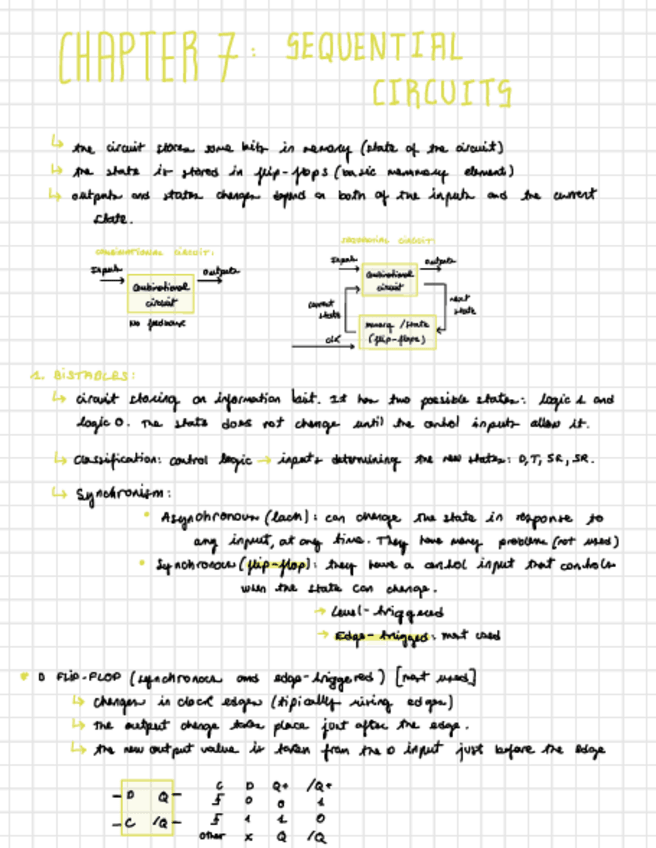 CHAPTER 7: SEQUENTIAL
CIRCUITS
↳ the circuit stores some bits in memory (state of the circuit)
↳ the state is stored in flip-flops (basic memmory element)
↳ outputs and states changes depend on both of the inputs and the current
state.
COMBINATIONAL CIRCUIT:
SEQUENTIAL CIRCUIT:
Inputs
Outputs
Combinational
circuit
No feedback
Inputs
Outputs
Combinational
circuit
current
state
next
state
memory/state
(flip-flops)
clk
1. BISTABLES:
↳ circuit storing an information bit. It has two possible states: logic 1 and
logic 0. The state does not change until the control inputs allow it.
↳ Classification: control logic → inputs determining the new states: D, T, SR, SR.
↳ Synchronism:
• Asynchronous (lach): can change the state in response to
any input, at any time. They have many problems (not used)
• Synchronous (flip-flop): they have a control input that controls
when the state can change.
→ Level-triggered
→ Edge-triggered: most used
• D FLIP-FLOP (synchronous and edge-triggered) [most used]
↳ changes in clock edges (tipically rising edges)
↳ The output change takes place just after the edge.
↳ the new output value is taken from the D input just before the edge
D Q
C /Q
C D Q+ /Q+
0 0 1
1 1 0
other x Q /Q